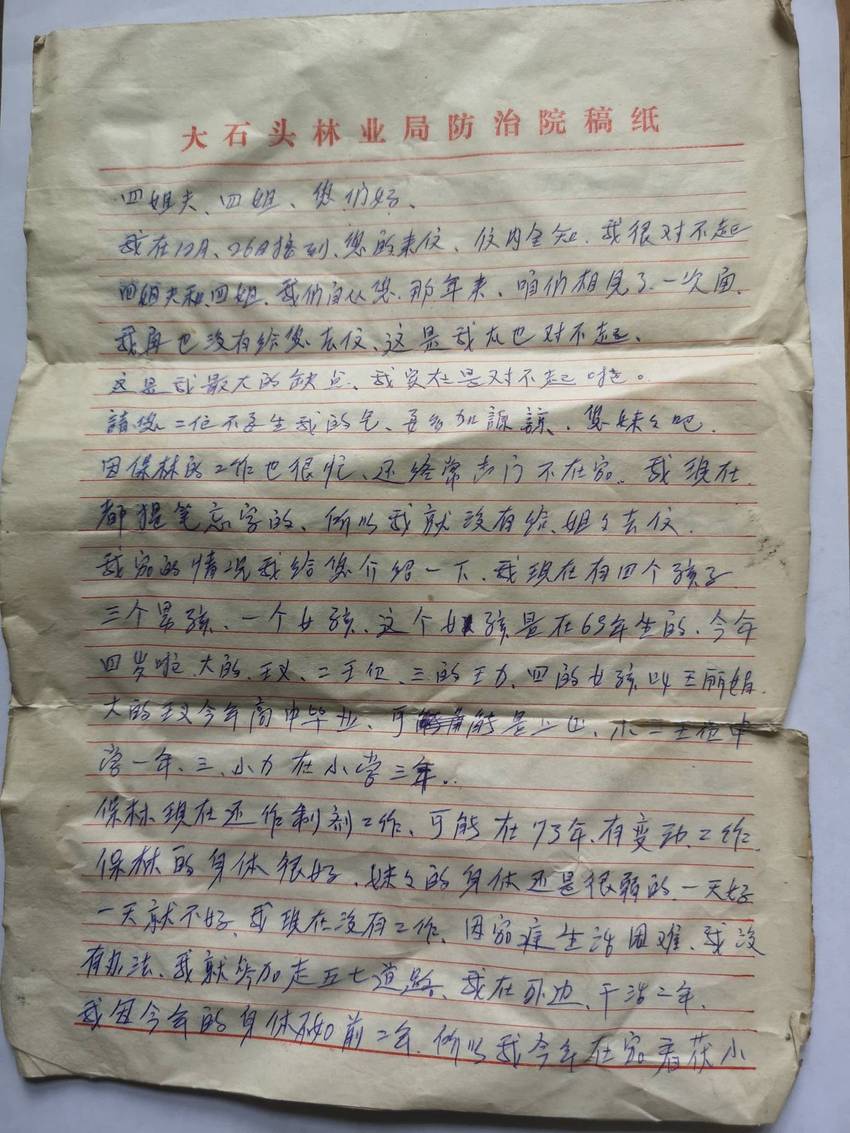 大石头林业局防治院稿纸
四姐夫、四姐、您们好、
我在12月、26日接到、您的来信、信内全知、我很对不起
四姐夫和、四姐、我们自从您、那年来、咱们相见了、一次面、
我再也没有给您去信、这是我太也对不起、
这是我最大的缺点、我实在是对不起啦。
請您二位不要生我的气、要多加諒、您妹々吧、
因保林的工作也很忙、还经常出门不在家、我现在
都提笔忘字的、所以我就没有给、姐々去信、
我家的情况我给您介绍一下、我现在有四个孩子
三个男孩、一个女孩、这个女孩是在69年生的、今年
四岁啦、大的、王、二王、三的王力、四的女孩叫王丽娟、
大的王今年高中毕业、可能是上山、小二王中
学一年、三、小力在小学三年、
保林现在还作制剂工作、可能在73年、有变动工作、
保林的身体很好、妹々的身体还是很弱的、一天好
一天就不好、我现在没有工作、因家庭生活困难、我没
有办法、我就参加走五七道路、我在外边、干活二年、
我因今年的身体不如前二年、所以我今年在家看小